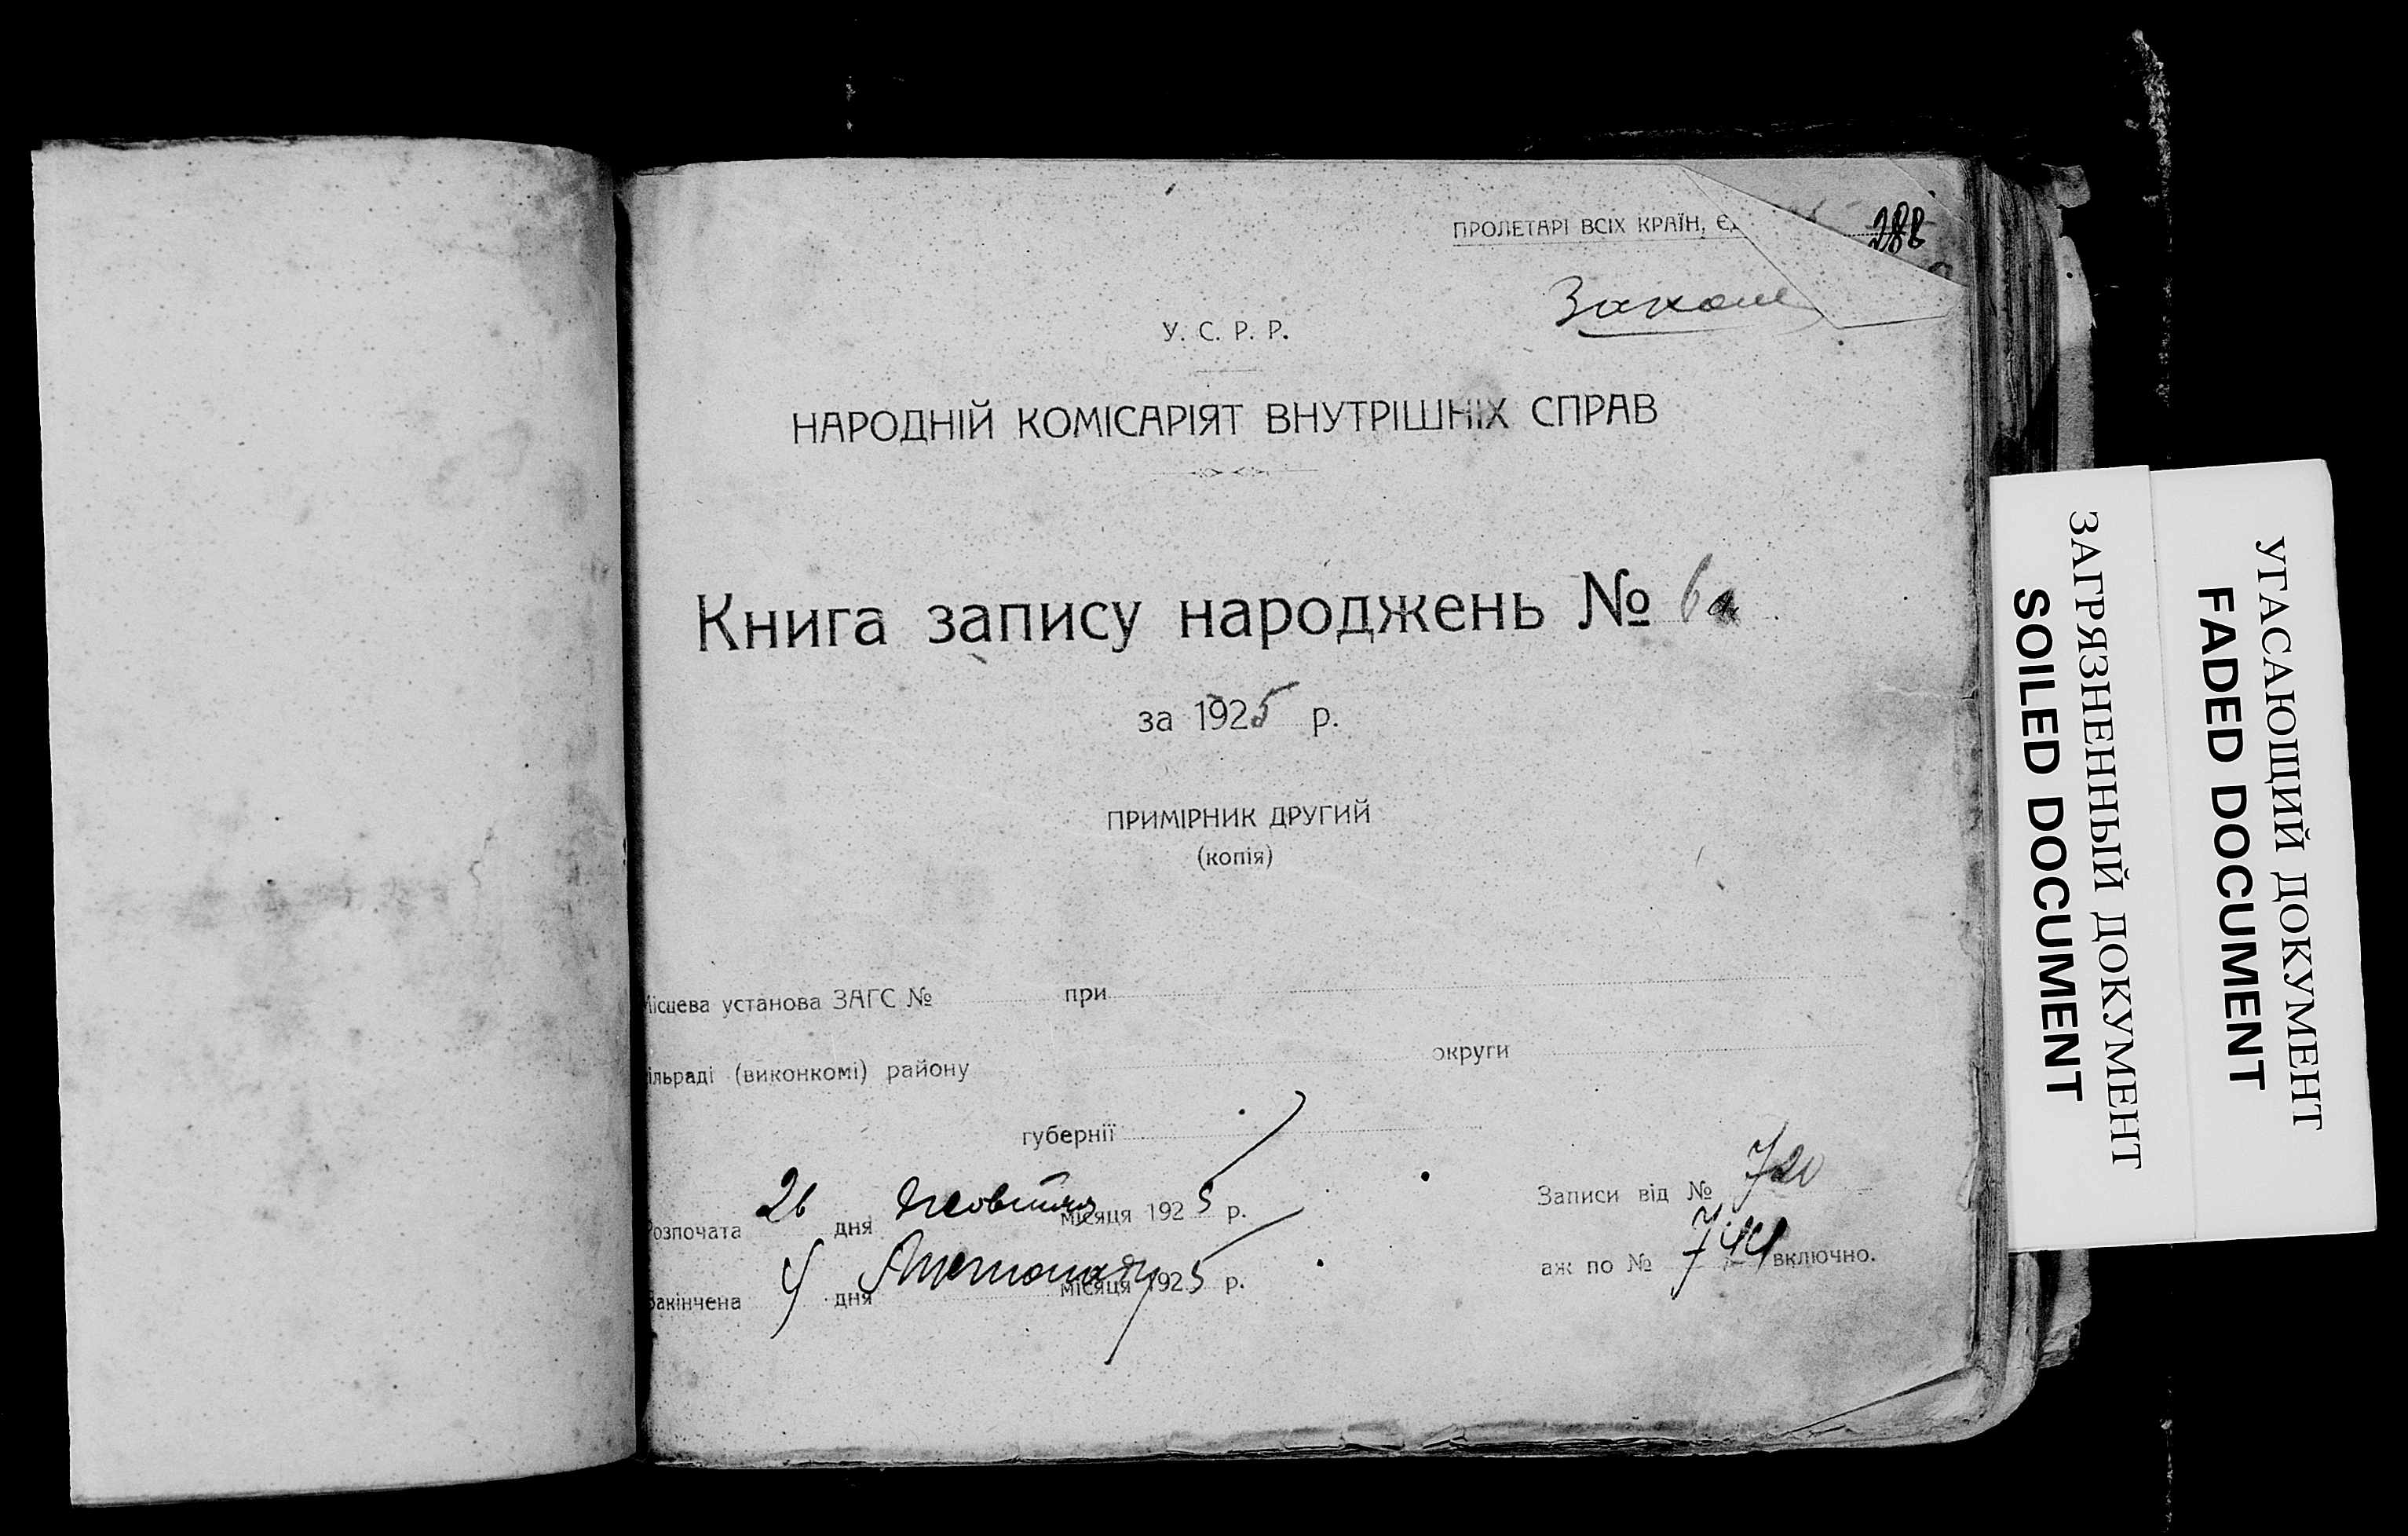 ПРОЛЕТАРІ ВСІХ КРАЇН, ЄД
288
У. С. Р. Р.
НАРОДНІЙ КОМІСАРІЯТ ВНУТРІШНІХ СПРАВ
Книга запису народжень № 6а
за 1925 р.
ПРИМІРНИК ДРУГИЙ
(копія)
Місцева установа ЗАГС № при
сільраді (виконкомі) району округи
губернії
Розпочата 26 дня Жовтня місяця 1925 р.
Закінчена 4 дня Листопаду місяця 1925 р.
Записи від № 720
аж по № 744 включно.
ЗАГРЯЗНЕННЫЙ ДОКУМЕНТ
SOILED DOCUMENT
УГАСАЮЩИЙ ДОКУМЕНТ
FADED DOCUMENT